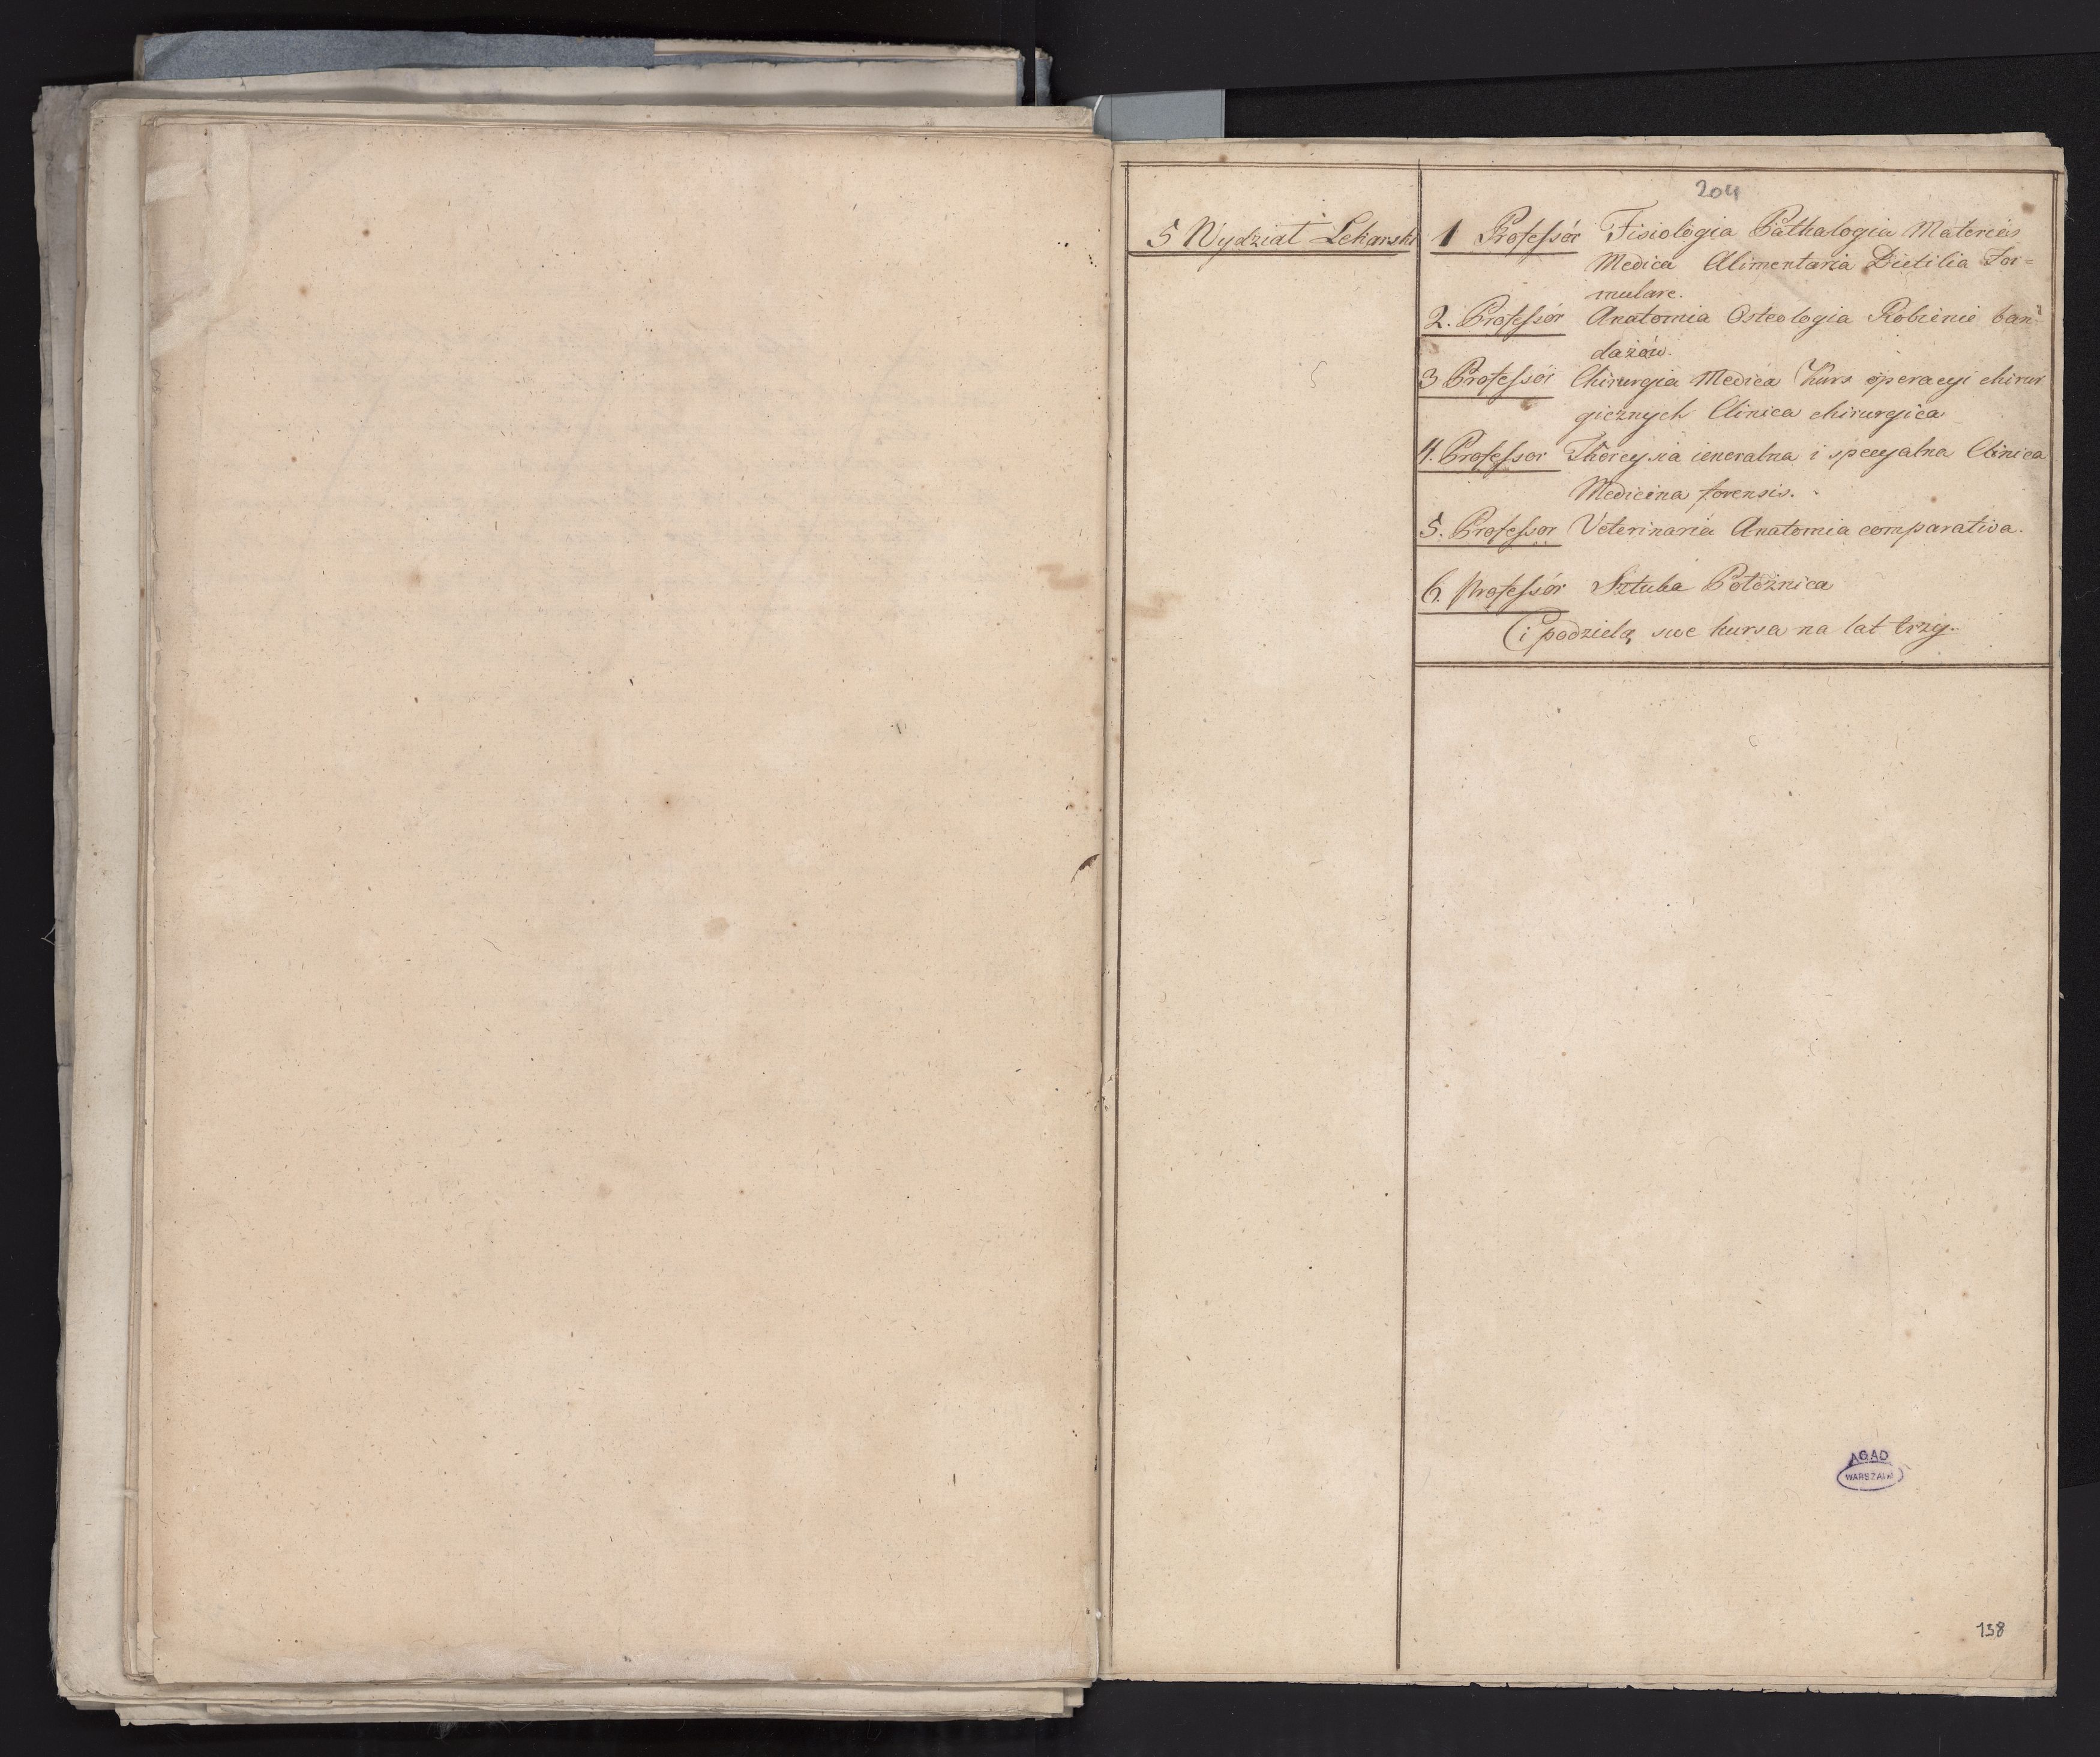 204
5 Wydział Lekarski
1 Professór Fisiologia Pathalogia Materies
Medica Alimentaria Dietilia For=
mulare.
2. Professór Anatomia Osteologia Robienie ban=
dażów.
3 Professór Chirurgia Medica Kurs operacyi chirur
gicznych Clinica chirurgica
4. Professor ieneralna i specyalna Clinica
Medicina forensis.
5. Professor Veterinaria Anatomia comparativa.
6. Professór Sztuka Położnica
Ci podzielą swe kursa na lat trzy.
AGAD
WARSZAWA
138